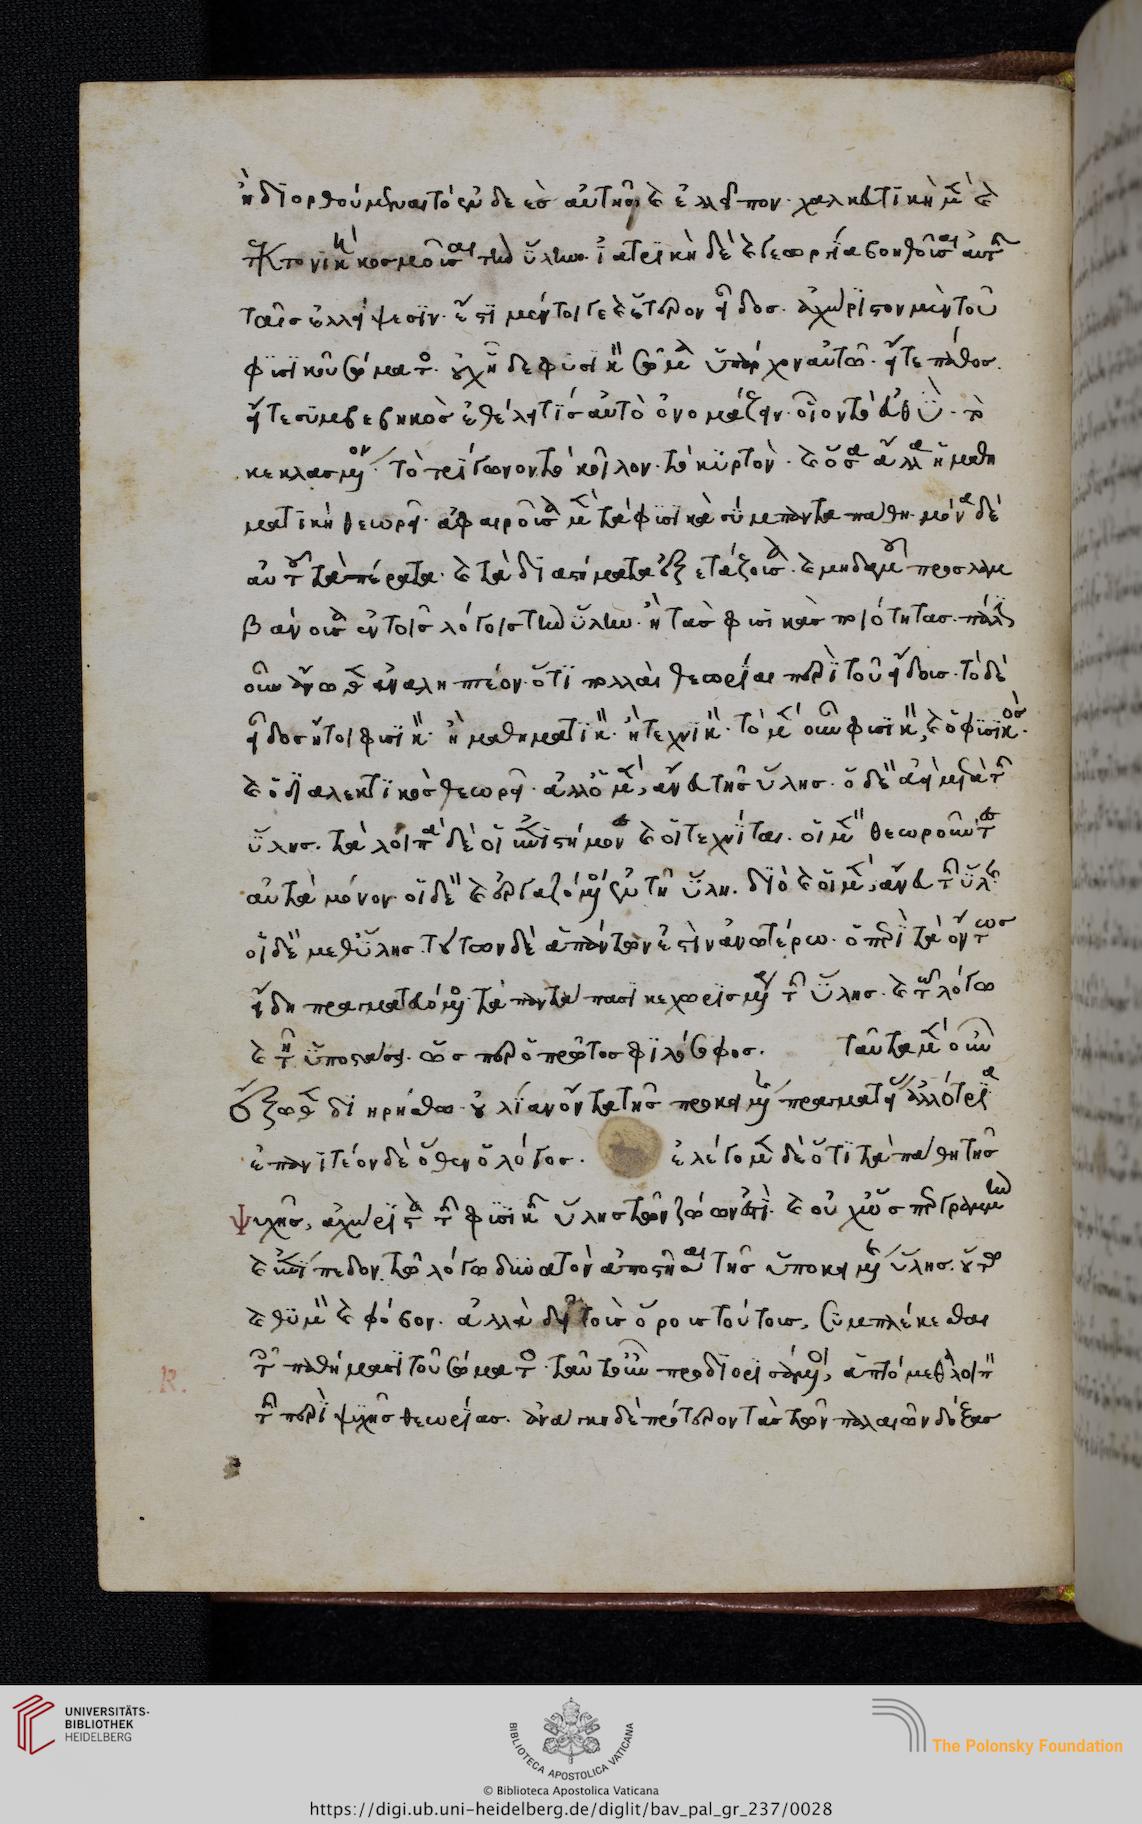 ἢ διορθούμεναι τὸ ἐνδεὲς αὐτῆς καὶ ἐλλεῖπον· χαλκευτικὴ μὲν καὶ
τεκτονικὴ κοσμοῦσαι τὴν ὕλην· ἰατρικὴ δὲ καὶ γεωργία βοηθοῦσαι αὐτῆς
ταῖς ἐλλείψεσιν· ἔστι μέντοι γε καὶ ἕτερον εἶδος· ἀχώριστον μὲν τοῦ
φυσικοῦ σώματος· οὐχ ᾗ δὲ φυσικὸν σῶμα ὑπάρχον αὐτῷ· εἴτε πάθος
εἴτε συμβεβηκὸς ἐθέλει τις αὐτὸ ὀνομάζειν· οἷον τὸ εὐθύ· τὸ
κεκλασμένον· τὸ τρίγωνον τὸ κοῖλον· τὸ κυρτόν· καὶ ὅσα ἄλλα ἡ μαθη
ματικὴ θεωρεῖ· ἀφαιροῦσα μὲν τὰ φυσικὰ σύμπαντα πάθη· μόνα δὲ
αὐτοῦ τὰ πέρατα· καὶ τὰ διαστήματα ἐξετάζουσα· καὶ μηδαμοῦ προσλαμ
βάνουσα ἐν τοῖς λόγοις τὴν ὕλην· ἢ τὰς φυσικὰς ποιότητας· πάλιν
οὖν ἄνωθεν ἀναληπτέον· ὅτι πολλαὶ θεωρίαι περὶ τοῦ εἴδους· τὸ δὲ
εἶδος ἤτοι φυσικόν· ἢ μαθηματικόν· ἢ τεχνικόν· τὸ μὲν οὖν φυσικόν, καὶ ὁ φυσικός·
καὶ ὁ διαλεκτικὸς θεωρεῖ· ἀλλ' ὁ μὲν, ἄνευ τῆς ὕλης· ὁ δὲ ἀεὶ μετὰ τῆς
ὕλης. τὰ λοιπὰ δὲ οἱ ἐπιστήμονες καὶ οἱ τεχνῖται. οἱ μὲν θεωροῦντες
αὐτὰ μόνον· οἱ δὲ καὶ ἐργαζόμενοι ἐν τῇ ὕλῃ. διὸ καὶ οἱ μὲν, ἄνευ τῆς ὕλης·
οἱ δὲ μεθ' ὕλης. τούτων δὲ ἁπάντων ἐστὶν ἀνωτέρω· ὁ περὶ τὰ ὄντως
εἴδη πραγματευόμενος· τὰ πάντα πᾶσι κεχωρισμένα τῆς ὕλης· καὶ τῷ λόγῳ
καὶ τῇ ὑποστάσει. ὥσπερ ὁ πρῶτος φιλόσοφος. ταῦτα μὲν οὖν
ἔξωθεν διῃρήσθω· οὐ λίαν ὄντα τῆς προκειμένης πραγματείας ἀλλότρια
ἐπανιτέον δὲ ὅθεν ὁ λόγος. ἐλέγομεν δὲ ὅτι τὰ πάθη τῆς
ψυχῆς, ἀχώριστα τῆς φυσικῆς ὕλης τῶν ζώων ἐστί· καὶ οὐχ ὥσπερ γραμμὴν
καὶ ἐπίπεδον τῷ λόγῳ δυνατὸν ἀποστῆσαι τῆς ὑποκειμένης ὕλης. οὕτω
καὶ θυμὸν καὶ φόβον· ἀλλὰ δεῖ τοῖς ὅροις τούτοις, συμπλέκεσθαι
τοῖς παθήμασι τοῦ σώματος· ταῦτ' οὖν προδιορισάμενοι, ἁπτόμεθα λοιπὸν
τῆς περὶ ψυχῆς θεωρίας. ἀνάγκη δὲ πρότερον τὰς τῶν παλαιῶν δόξας
R.
UNIVERSITÄTS-
BIBLIOTHEK
HEIDELBERG
BIBLIOTECA APOSTOLICA VATICANA
The Polonsky Foundation
© Biblioteca Apostolica Vaticana
https://digi.ub.uni-heidelberg.de/diglit/bav_pal_gr_237/0028